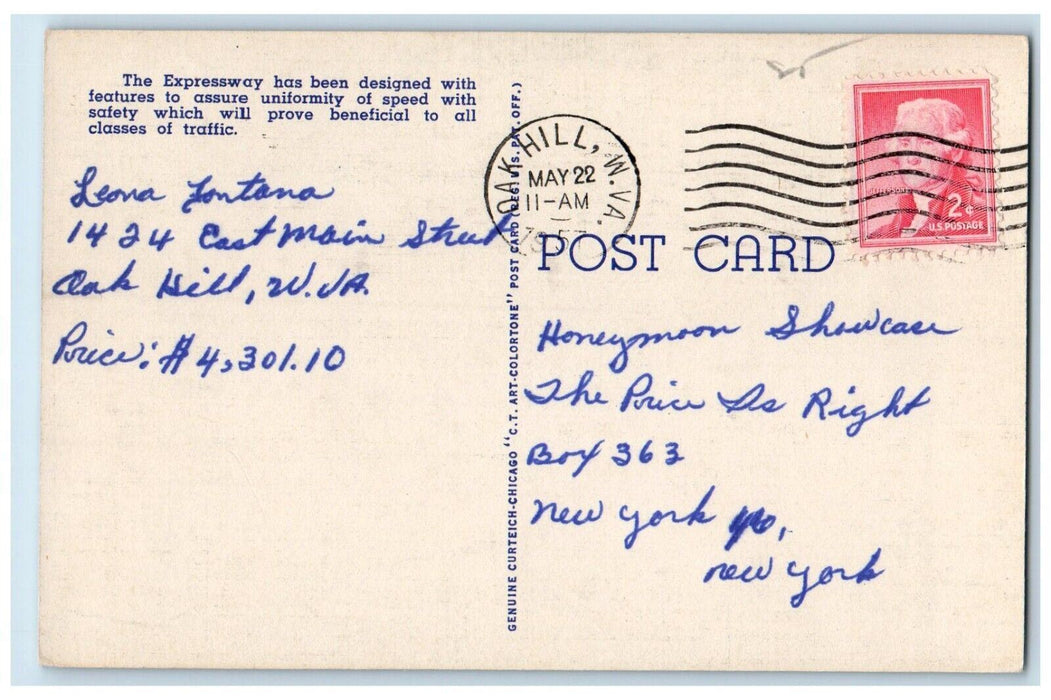 The Expressway has been designed with
features to assure uniformity of speed with
safety which will prove beneficial to all
classes of traffic.
Leona Fontana
1424 East Main Street
Oak Hill, W.VA.
Price: $4,301.10
GENUINE CURTEICH-CHICAGO "C.T. ART-COLORTONE" POST CARD (REG. U.S. PAT. OFF.)
OAK HILL, W.VA.
MAY 22
11-AM
1957
JEFFERSON
2¢
U.S. POSTAGE
POST CARD
Honeymoon Showcase
The Price Is Right
Box 363
New York
New York